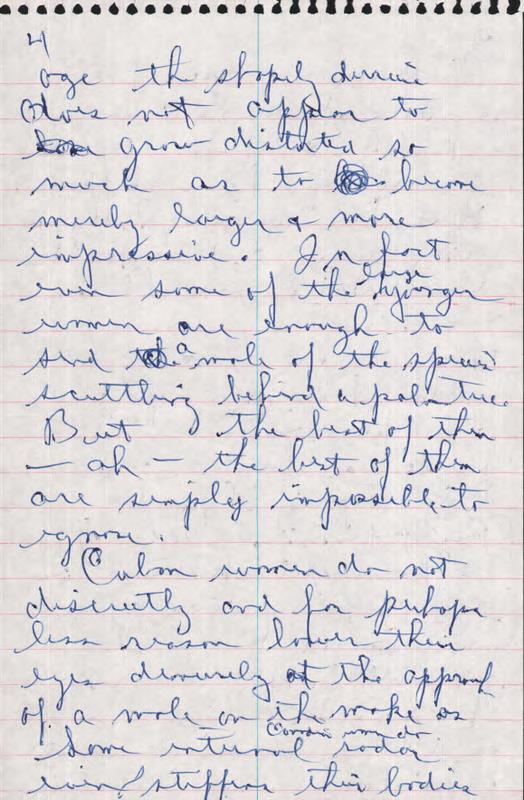 4
age the shapely derriere
does not appear to
grow distorted so
much as to become
merely larger & more
impressive. In fact
even some of the large younger
women are enough to
send a male of the species
scuttling behind a palm tree
But the best of them
— ah — the best of them
are simply impossible to
ignore.
Cuban women do not
discreetly and for perhaps
less reason lower their
eyes demurely at the approach
of a male on the make as
women do
Some internal radar
even stiffens their bodies